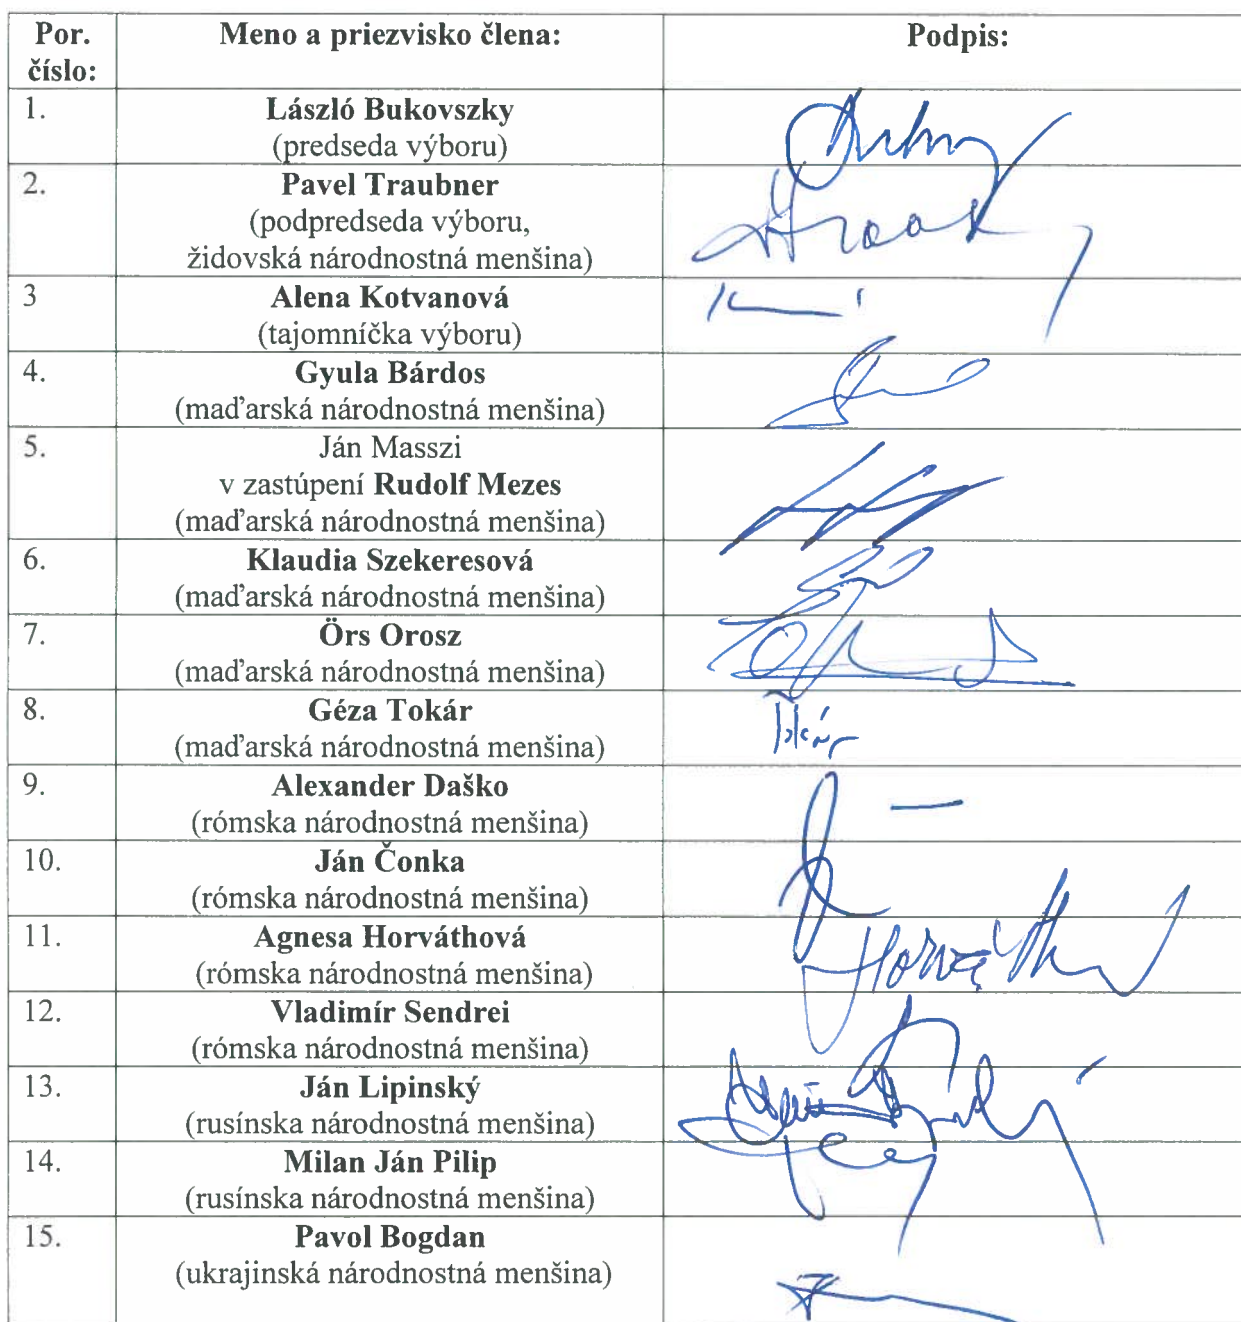 Por. číslo:
Meno a priezvisko člena:
Podpis:
1.
László Bukovszky
(predseda výboru)
2.
Pavel Traubner
(podpredseda výboru,
židovská národnostná menšina)
3
Alena Kotvanová
(tajomníčka výboru)
4.
Gyula Bárdos
(maďarská národnostná menšina)
5.
Ján Masszi
v zastúpení Rudolf Mezes
(maďarská národnostná menšina)
6.
Klaudia Szekeresová
(maďarská národnostná menšina)
7.
Örs Orosz
(maďarská národnostná menšina)
8.
Géza Tokár
(maďarská národnostná menšina)
Tokár
9.
Alexander Daško
(rómska národnostná menšina)
10.
Ján Čonka
(rómska národnostná menšina)
11.
Agnesa Horváthová
(rómska národnostná menšina)
12.
Vladimír Sendrei
(rómska národnostná menšina)
13.
Ján Lipinský
(rusínska národnostná menšina)
14.
Milan Ján Pilip
(rusínska národnostná menšina)
15.
Pavol Bogdan
(ukrajinská národnostná menšina)